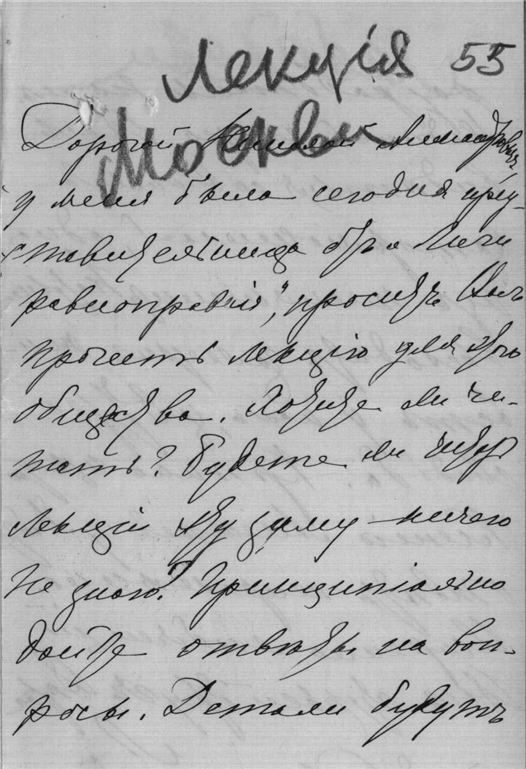 Лекція 55
Москва
Дорогой Николай Александровичъ,
у меня была сегодня пред-
ставительница о-ва „Лиги
равноправія", просить Васъ
прочесть лекцію для этого
общества. Хотите ли чи-
тать? Будете ли читать
лекціи эту зиму – ничего
не знаю? Принципіально
дайте отвѣты на воп-
росы. Детали будутъ